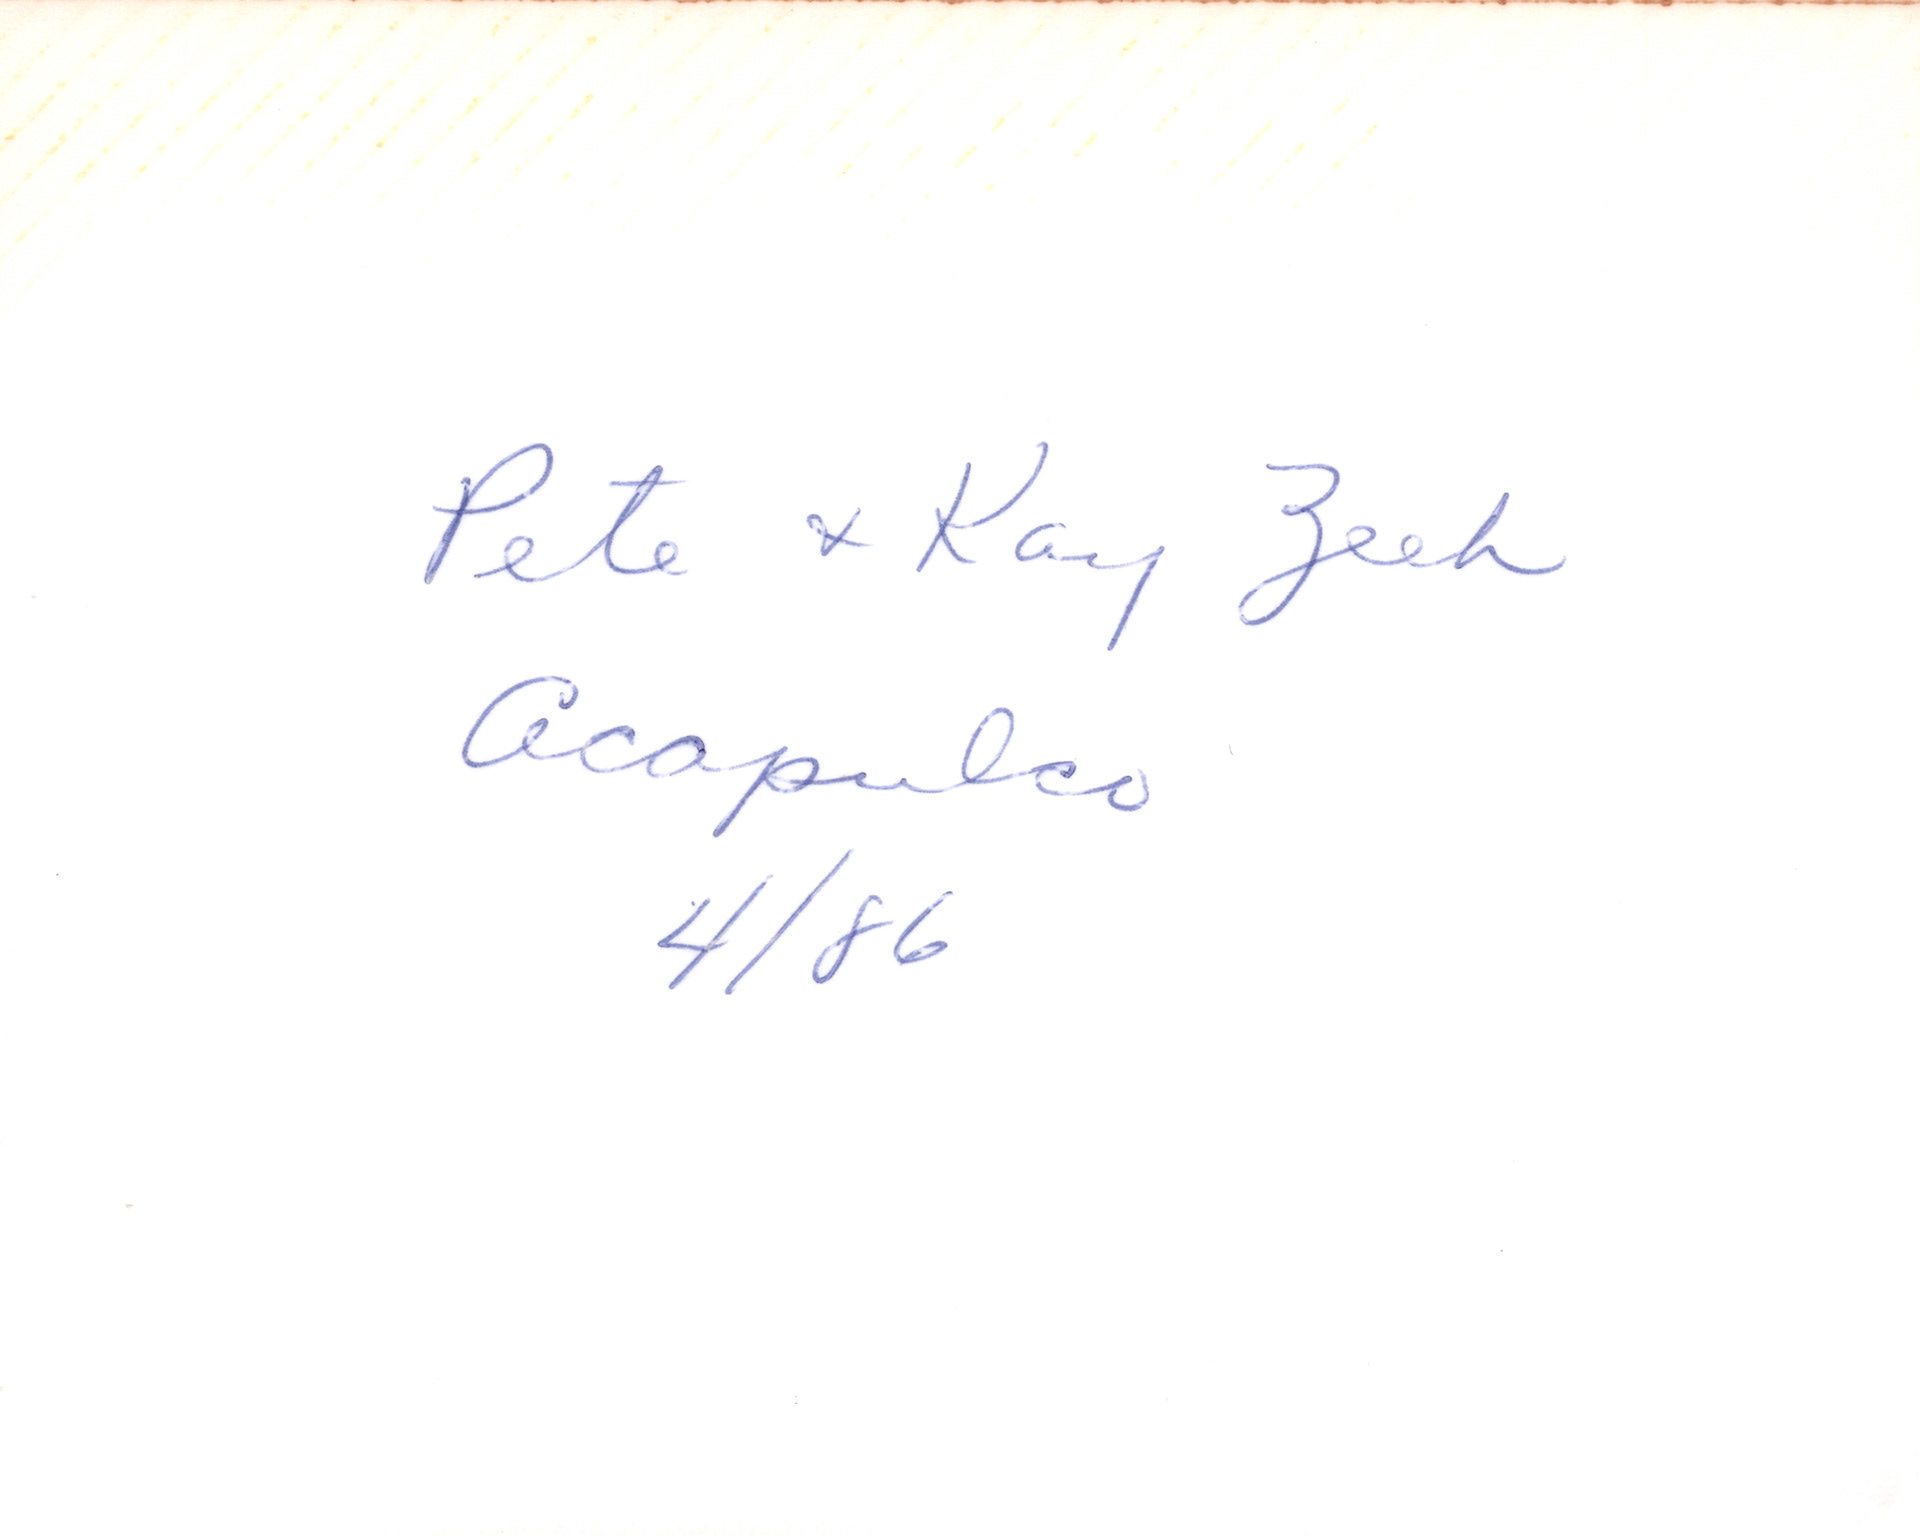 Pete & Kay Zeeh
Acapulco
4/86